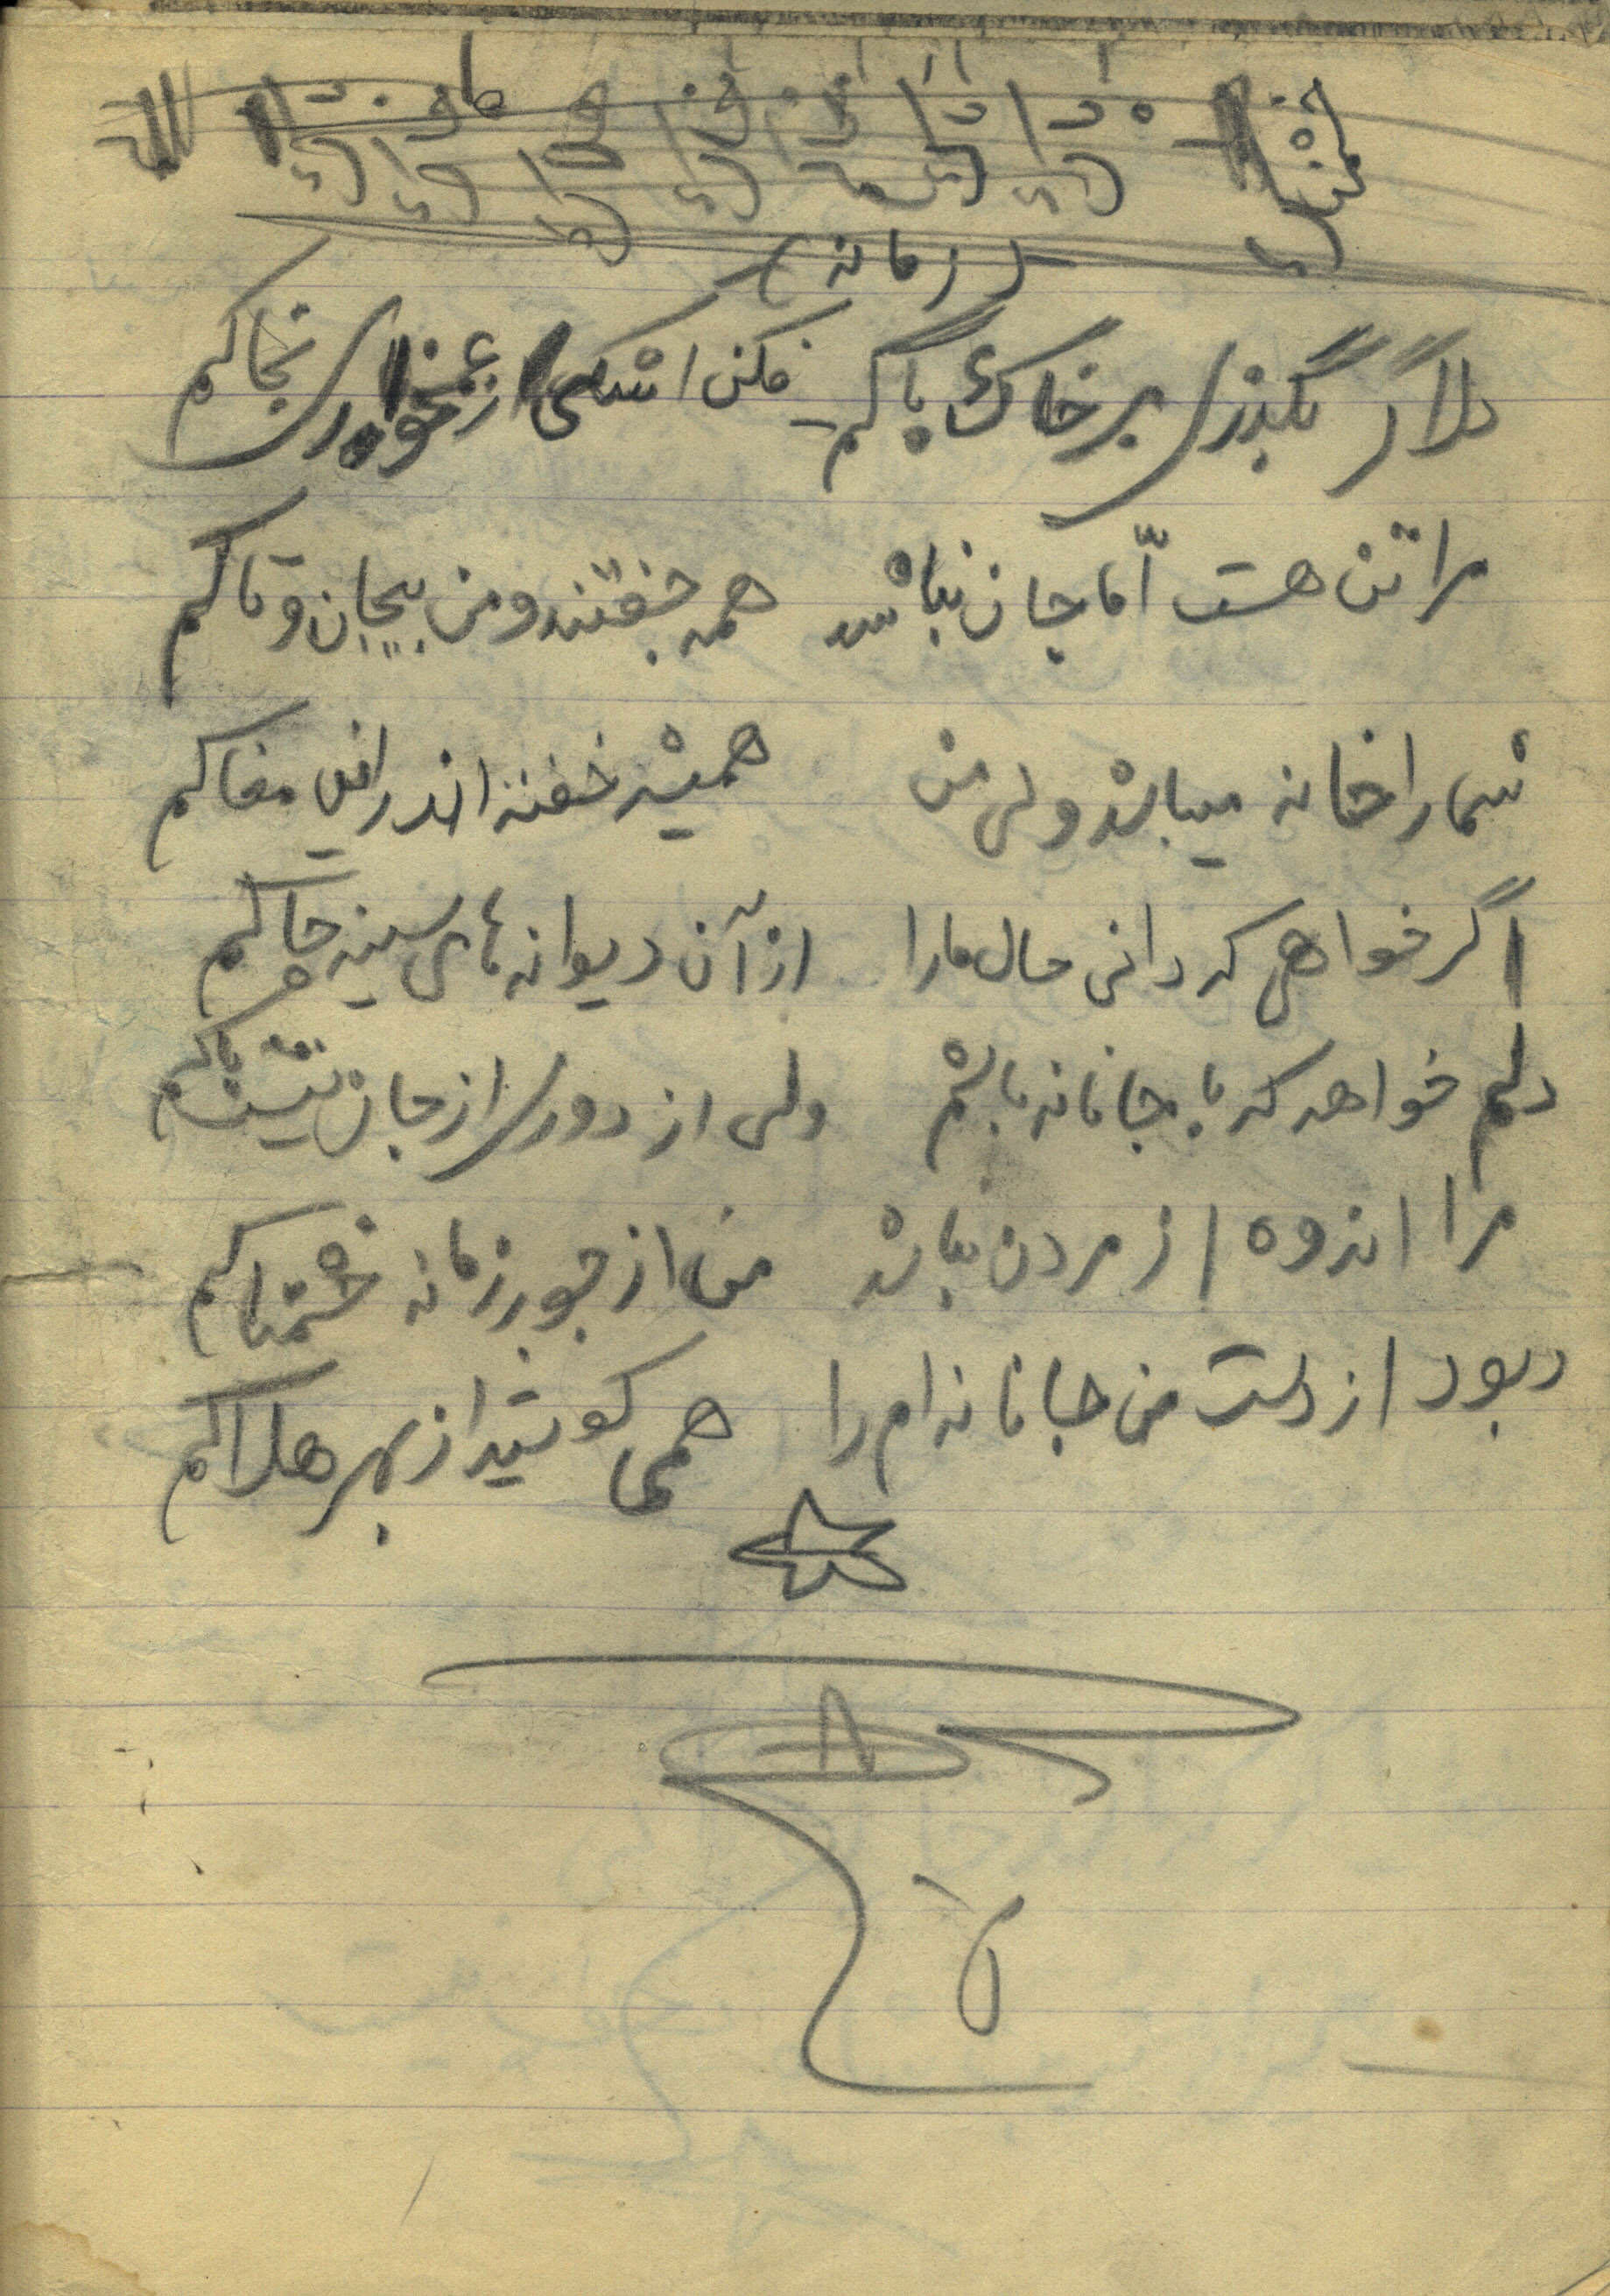 زمانه
دلا گر بگذری بر خاک پاکم فکن اشکی ز غمخواری بخاکم
مرا تن هست امّا جان نباشد همه جفتند و من بیجان و تاکم
شما را خانه میباشد ولی من همیشه خفته اندر این مغاکم
اگر خواهی که دانی حال ما را از آن دیوانه های سینه چاکم
دلم خواهد که با جانانه باشم ولی از دوری از جان
مرا اندوه از مردن نباشد من از جور زمانه خشمناکم
ربود از دست من جانانه ام را همی کوشید از بهر هلاکم